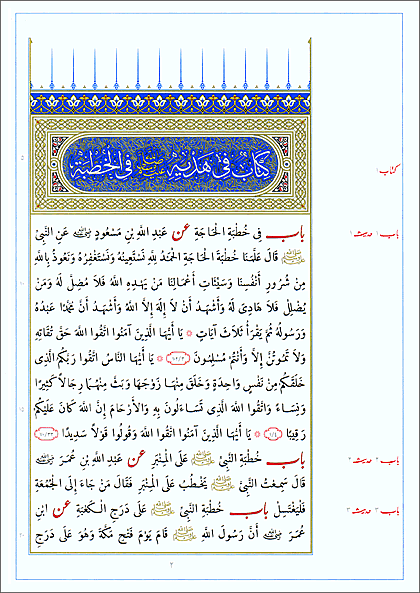 كتاب في هديه ﷺ في الخطبة
كتاب
باب ١ حديث ١
باب فِى خُطْبَةِ الْحَاجَةِ عن عَبْدِ اللَّهِ بْنِ مَسْعُودٍ رَضِيَ اللَّهُ عَنْهُ عَنِ النَّبِىِّ
ﷺ قَالَ عَلَّمَنَا خُطْبَةَ الْحَاجَةِ الْحَمْدُ لِلَّهِ نَسْتَعِينُهُ وَنَسْتَغْفِرُهُ وَنَعُوذُ بِاللَّهِ
مِنْ شُرُورِ أَنْفُسِنَا وَسَيِّئَاتِ أَعْمَالِنَا مَنْ يَهْدِهِ اللَّهُ فَلَا مُضِلَّ لَهُ وَمَنْ
يُضْلِلْ فَلَا هَادِىَ لَهُ وَأَشْهَدُ أَنْ لَا إِلَهَ إِلَّا اللَّهُ وَأَشْهَدُ أَنَّ مُحَمَّدًا عَبْدُهُ
وَرَسُولُهُ ثُمَّ يَقْرَأُ ثَلَاثَ آيَاتٍ * يَا أَيُّهَا الَّذِينَ آمَنُوا اتَّقُوا اللَّهَ حَقَّ تُقَاتِهِ
وَلَا تَمُوتُنَّ إِلَّا وَأَنْتُمْ مُسْلِمُونَ (١٠٢/٣) * يَا أَيُّهَا النَّاسُ اتَّقُوا رَبَّكُمُ الَّذِى
خَلَقَكُمْ مِنْ نَفْسٍ وَاحِدَةٍ وَخَلَقَ مِنْهَا زَوْجَهَا وَبَثَّ مِنْهُمَا رِجَالًا كَثِيرًا
وَنِسَاءً وَاتَّقُوا اللَّهَ الَّذِى تَسَاءَلُونَ بِهِ وَالْأَرْحَامَ إِنَّ اللَّهَ كَانَ عَلَيْكُمْ
رَقِيبًا (١/٤) * يَا أَيُّهَا الَّذِينَ آمَنُوا اتَّقُوا اللَّهَ وَقُولُوا قَوْلًا سَدِيدًا (٧٠/٣٣)
باب ٢ حديث ٢
باب خُطْبَةِ النَّبِىِّ ﷺ عَلَى الْمِنْبَرِ عن عَبْدِ اللَّهِ بْنِ عُمَرَ رَضِيَ اللَّهُ عَنْهُ
قَالَ سَمِعْتُ النَّبِىَّ ﷺ يَخْطُبُ عَلَى الْمِنْبَرِ فَقَالَ مَنْ جَاءَ إِلَى الْجُمُعَةِ
باب ٣ حديث ٣
فَلْيَغْتَسِلْ باب خُطْبَةِ النَّبِىِّ ﷺ عَلَى دَرَجِ الْكَعْبَةِ عن ابْنِ
عُمَرَ رَضِيَ اللَّهُ عَنْهُ أَنَّ رَسُولَ اللَّهِ ﷺ قَامَ يَوْمَ فَتْحِ مَكَّةَ وَهُوَ عَلَى دَرَجِ
٢